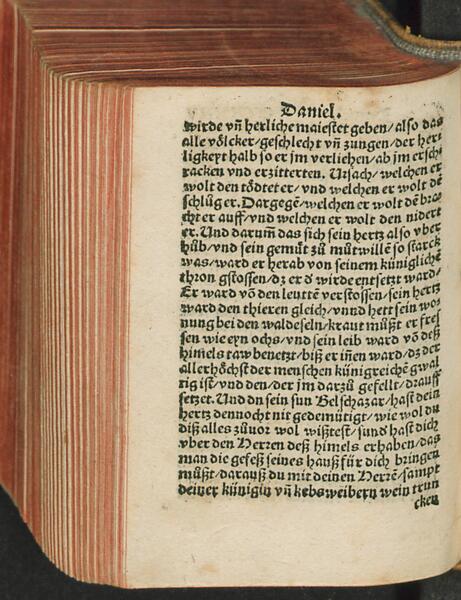 Daniel.
wirde vñ herliche maiestet geben/also das
alle völcker/geschlecht vñ zungen/der her⸗
ligkeyt halb so er jm verliehen/ab jm ersch⸗
racken vnd erzitterten. Ursach/welchen er
wolt den tödtet er/vnd welchen er wolt dē
schlůg er. Dargegē/welchen er wolt dē brac
cht er auff/vnd welchen er wolt den nidert
er. Und darum̃ das sich sein hertz also vber
hůb/vnd sein gemüt zů můtwillē so starck
was/ward er herab von seinem küniglichē
thron gstossen/dz er d̕ wirde entsetzt ward/
Er ward vō den leuttē verstossen/sein hertz
ward den thieren gleich/vnnd hett sein wo⸗
nung bei den waldeseln/kraut můßt er fres
sen wie eyn ochs/vnd sein leib ward vō deß
himels taw benetzt/biß er iñen ward/dz der
allerhöchst der menschen künigreichē gwal
tig ist/vnd den/der jm darzů gefellt/drauff
setzet. Und du sein sun Belschazar/hast dein
hertz dennocht nit gedemütigt/wie wol du
diß alles zůuor wol wißtest/sund̕ hast dich
vber den Herren deß himels erhaben/das
man die gefeß seines hauß für dich bringen
můßt/darauß du mit deinen Herrē/sampt
deiner künigin vñ kebsweibern wein trun
cken